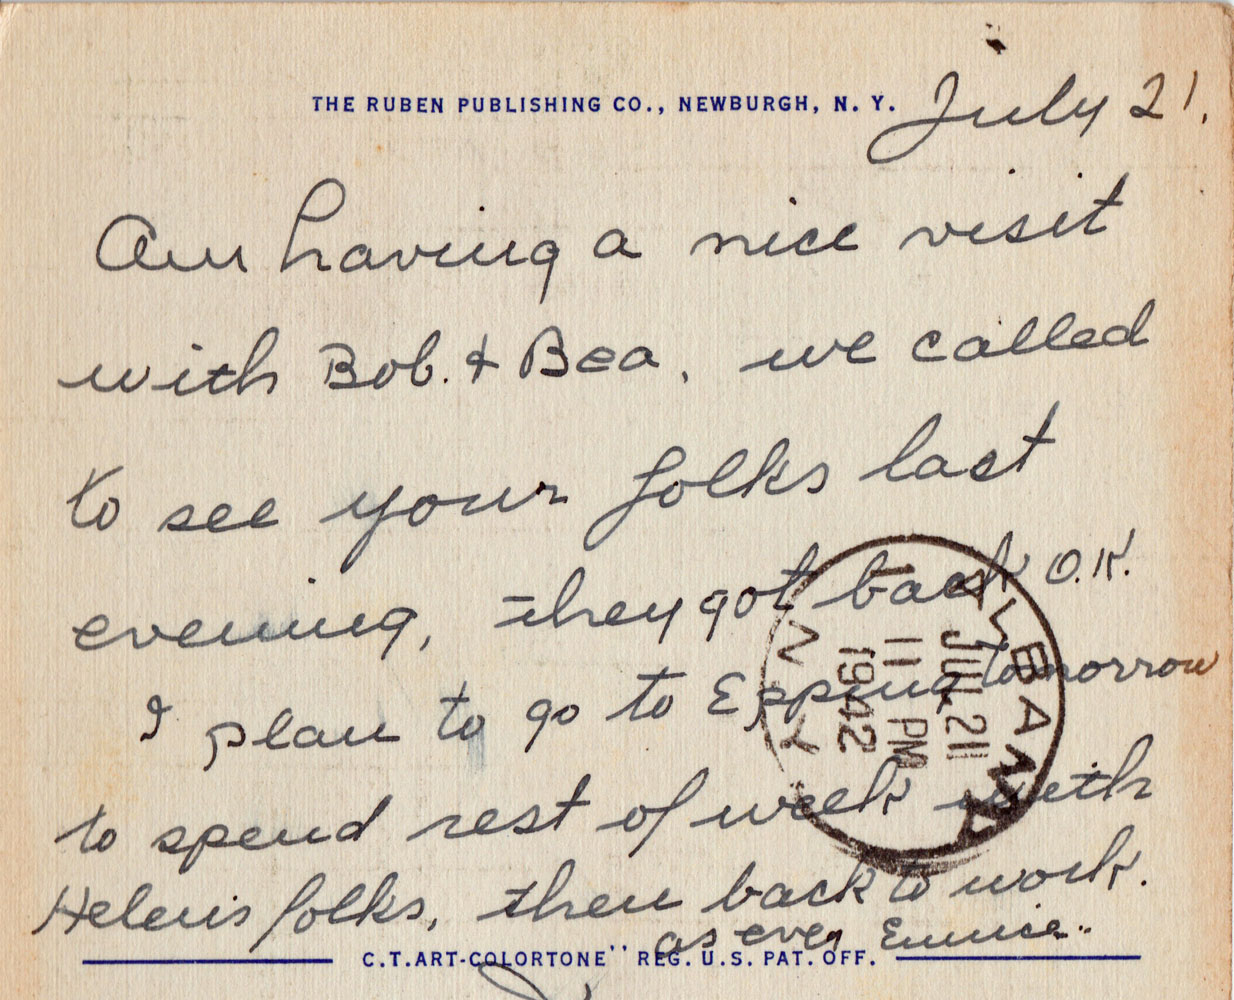 THE RUBEN PUBLISHING CO., NEWBURGH, N. Y.
July 21.
Am having a nice visit
with Bob. & Bea, we called
to see your folks last
evening, they got back O.K.
I plan to go to Epping tomorrow
to spend rest of week with
Helen's folks, then back to work.
as ever Eunice..
C.T.ART-COLORTONE" REG. U.S. PAT. OFF.
ALBANY
JUL 21
11 PM
1942
N Y